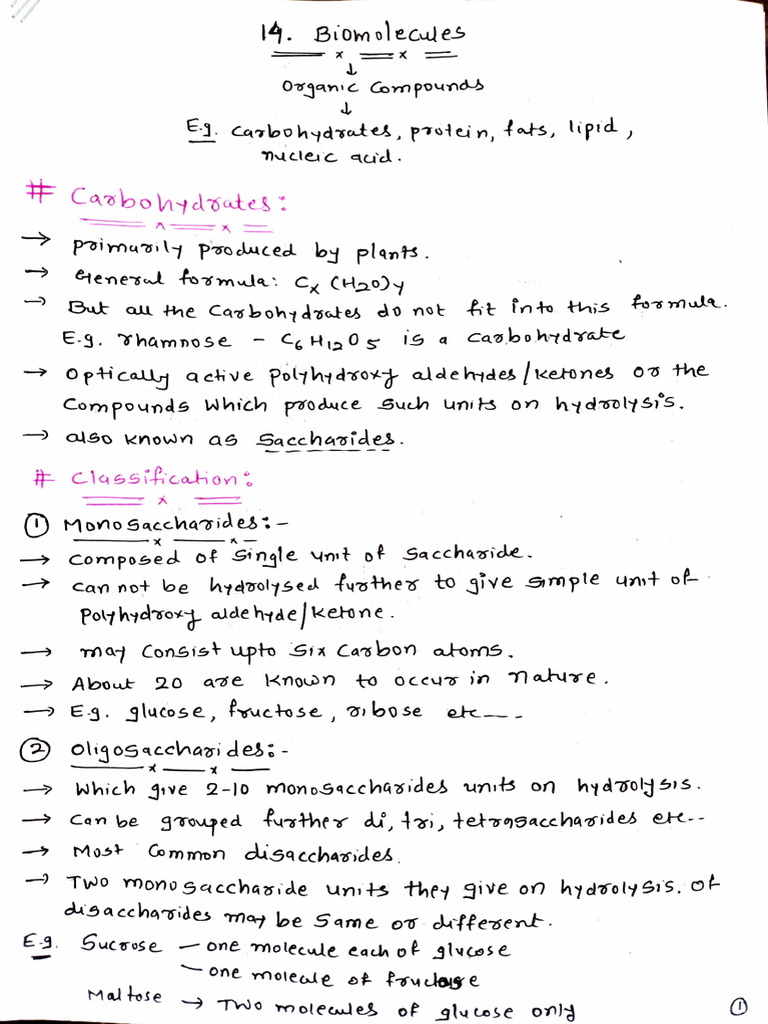 14. Biomolecules
↓
Organic Compounds
↓
E.g. Carbohydrates, protein, fats, lipid,
nucleic acid.
# Carbohydrates:
→ primarily produced by plants.
→ General formula: Cx (H2O)y
→ But all the Carbohydrates do not fit into this formula.
E.g. rhamnose - C6H12O5 is a carbohydrate
→ optically active polyhydroxy aldehydes/ketones or the
Compounds which produce such units on hydrolysis.
→ also known as Saccharides.
# Classification:
① Monosaccharides:-
→ composed of single unit of saccharide.
→ can not be hydrolysed further to give simple unit of
polyhydroxy aldehyde/ketone.
→ may consist upto six carbon atoms.
→ About 20 are known to occur in nature.
→ E.g. glucose, fructose, ribose etc---
② Oligosaccharides:-
→ Which give 2-10 monosaccharides units on hydrolysis.
→ Can be grouped further di, tri, tetrasaccharides etc--
→ Most Common disaccharides.
→ Two monosaccharide units they give on hydrolysis. of
disaccharides may be same or different.
E.g. Sucrose - one molecule each of glucose
- one molecule of fructose
Maltose → Two molecules of glucose only
①